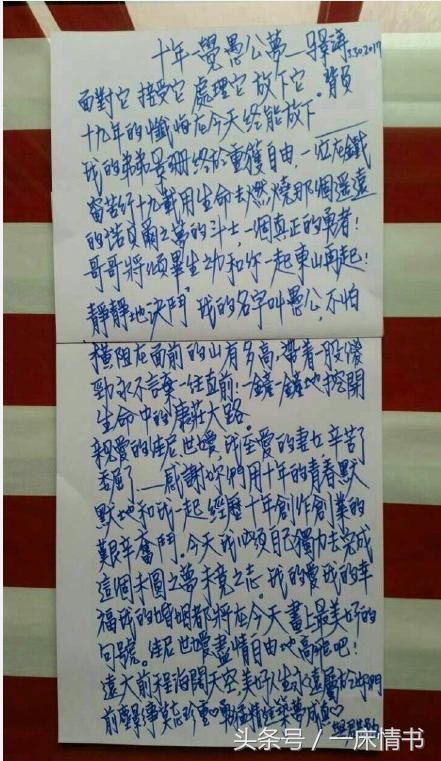 十年一覺愚公夢—驛濤 7.30.2017
面對它 接受它 處理它 放下它。背負
十九年的懺悔在今天終能放下
我的弟弟景珊終於重獲自由,一位在鐵
窗苦行十九載用生命去燃燒那個遥遠
的諾貝爾之夢的斗士,一個真正的勇者!
哥哥將傾畢生之力和你一起東山再起!
靜靜地決鬥,我的名字叫愚公,不怕
橫阻在面前的山有多高,帶着一股傻
勁永不言棄一往直前,一鐘一鐘地挖開
生命中的康莊大路。
親愛的佳尼世嬡,我至愛的妻女,辛苦了
委屈了——感謝你們用十年的青春默
默地和我一起經歷十年創作創業的
艱辛奮鬥。今天我必須自己獨力去完成
這個未圓之夢未竟之志。我的愛我的幸
福我的婚姻都將在今天畫上最美好的
句號。佳尼世嬡盡情自由地高飛吧!
遠大前程海闊天空美好人生永遠屬於你們
前塵舊事莫忘珍重♡勇猛精進築夢成真♡
头条号/一床情书